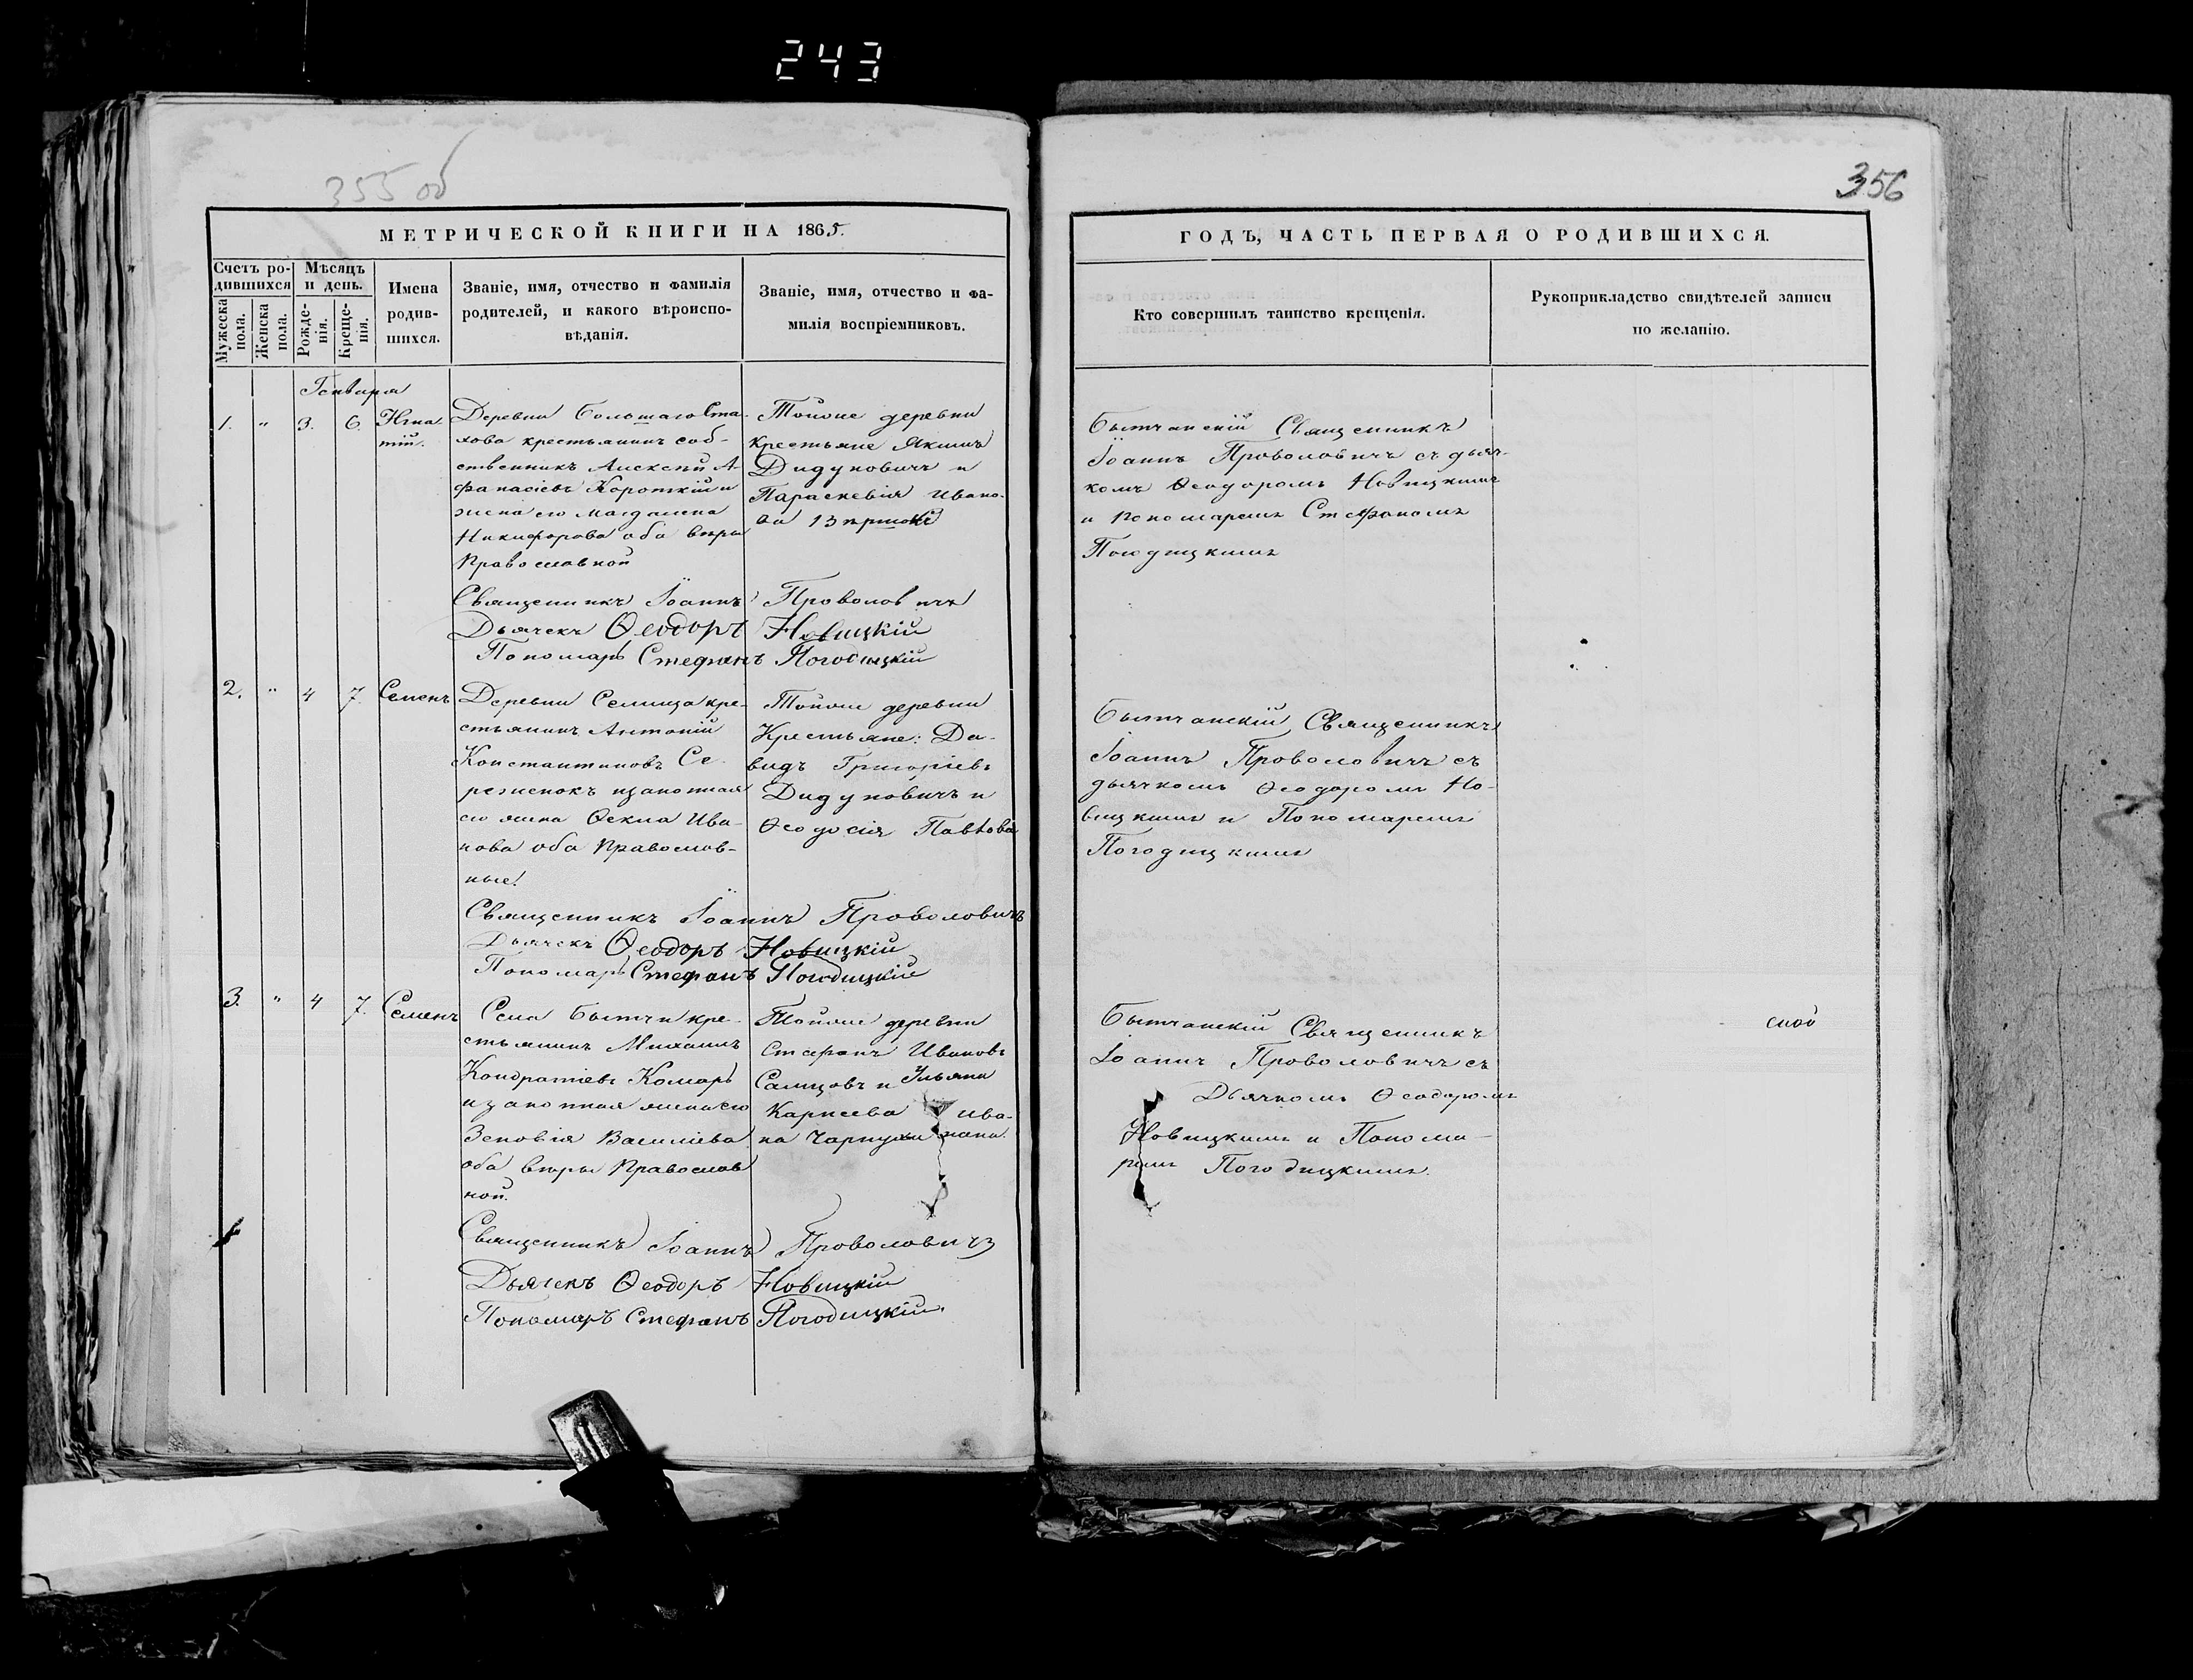 243
355 об
356
МЕТРИЧЕСКОЙ КНИГИ НА 1865.
Счетъ родившихся
Мѣсяцъ и день.
Мужеска пола.
Женска пола.
Рожденія.
Крещенія.
Имена родившихся.
Званіе, имя, отчество и фамилія
родителей, и какого вѣроиспо-
вѣданія.
Званіе, имя, отчество и фа-
милія воспріемниковъ.
ГОДЪ, ЧАСТЬ ПЕРВАЯ О РОДИВШИХСЯ.
Кто совершилъ таинство крещенія.
Рукоприкладство свидѣтелей записи
по желанію.
Генваря
1. " 3. 6. Игна-
тій.
Деревни Большаго Ста-
хова крестьянинъ соб-
ственникъ Алексѣй А-
фанасіевъ Короткій и
жена его Магдалена
Никифорова оба вѣры
Православной
Тойже деревни
Крестьяне Якимъ
Дидуновичъ и
Параскевія Ивано-
ва
Бытчанскій Священникъ
Іоаннъ Проволовичъ съ дьяч-
комъ Ѳеодоромъ Новицкимъ
и Пономаремъ Стефаномъ
Погодицкимъ
Священникъ Іоаннъ Проволовичъ
Дьячекъ Ѳеодоръ Новицкій
Пономарь Стефанъ Погодицкій
2. " 4 7. Семенъ
Деревни Селища кре-
стьянинъ Антоній
Константиновъ Се-
реженокъ изаконная
его жена Ѳекла Ива-
нова оба Православ-
ные.
Тойже деревни
Крестьяне: Да-
видъ Григоріевъ
Дидуновичъ и
Ѳеодосія Павлова
Бытчанскій Священникъ
Іоаннъ Проволовичъ съ
дьячкомъ Ѳеодоромъ Но-
вицкимъ и Пономаремъ
Погодицкимъ
Священникъ Іоаннъ Проволовичъ
Дьячекъ Ѳеодоръ Новицкій
Пономарь Стефанъ Погодицкій
3. " 4 7. Семенъ
Села Бытчи кре-
стьянинъ Михаилъ
Кондратіевъ Комаръ
изаконная жена его
Зеновія Василіева
оба вѣры Православ
ной.
Тойже деревни
Стефанъ Ивановъ
и Ульяна
Карнеева Ива-
на
Бытчанскій Священникъ
Іоаннъ Проволовичъ съ
Дьячкомъ Ѳеодоромъ
Новицкимъ и Понома-
ремъ Погодицкимъ.
Священникъ Іоаннъ Проволовичъ
Дьячекъ Ѳеодоръ Новицкій
Пономарь Стефанъ Погодицкій.